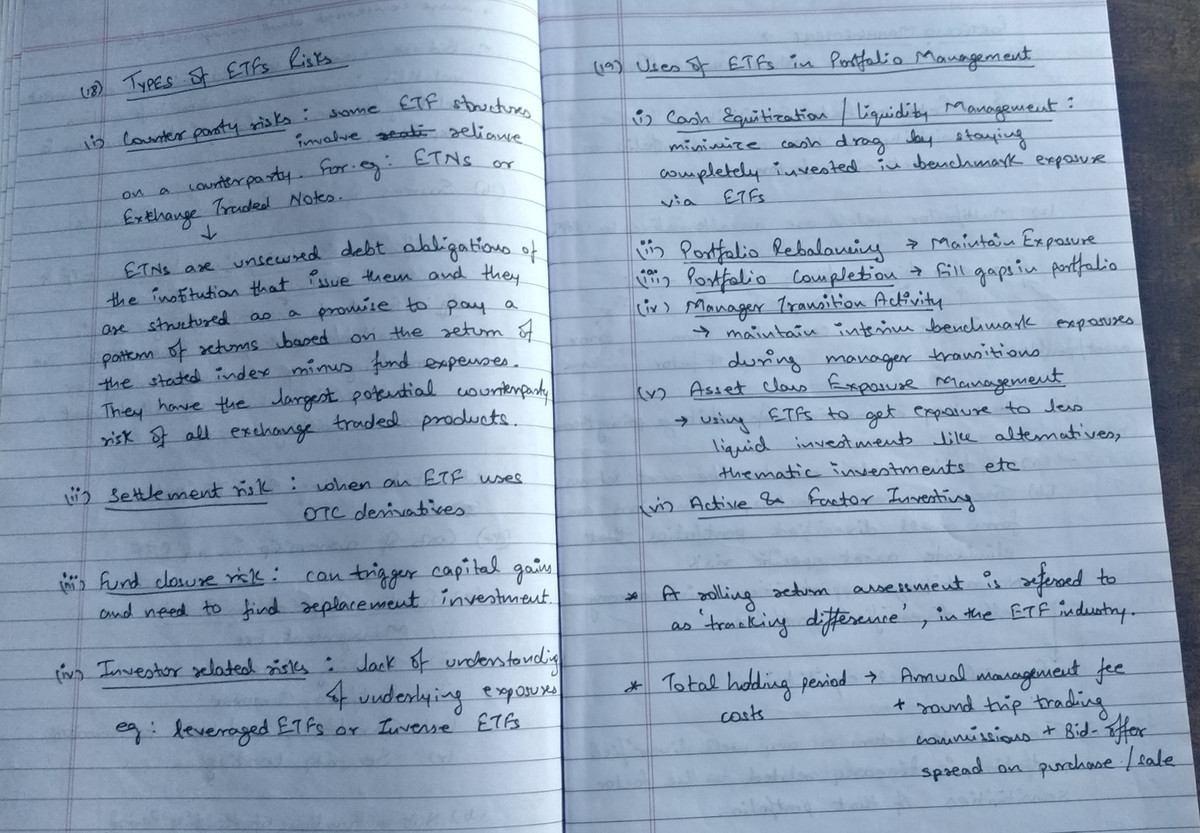 (18) TYPES Of ETFs Risks
(i) Counter party risks : some ETF structures
involve reliance
on a counterparty. For eg : ETNs or
Exchange Traded Notes.
↓
ETNs are unsecured debt obligations of
the institution that issue them and they
are structured as a promise to pay a
pattern of returns based on the return of
the stated index minus fund expenses.
They have the largest potential counterparty
risk of all exchange traded products.
(ii) Settlement risk : when an ETF uses
OTC derivatives
(iii) Fund closure risk : can trigger capital gains
and need to find replacement investment.
(iv) Investor related risks : lack of understanding
of underlying exposures
eg : leveraged ETFs or Inverse ETFs
(19) Uses of ETFs in Portfolio Management
(i) Cash Equitization / liquidity Management :
minimize cash drag by staying
completely invested in benchmark exposure
via ETFs
(ii) Portfolio Rebalancing → Maintain Exposure
(iii) Portfolio Completion → fill gaps in portfolio
(iv) Manager Transition Activity
→ maintain interim benchmark exposures
during manager transitions
(v) Asset class Exposure Management
→ using ETFs to get exposure to less
liquid investments like alternatives,
thematic investments etc
(vi) Active & Factor Investing
* A rolling return assessment is referred to
as 'tracking difference', in the ETF industry.
* Total holding period → Annual management fee
costs + round trip trading
commissions + Bid-offer
spread on purchase / sale